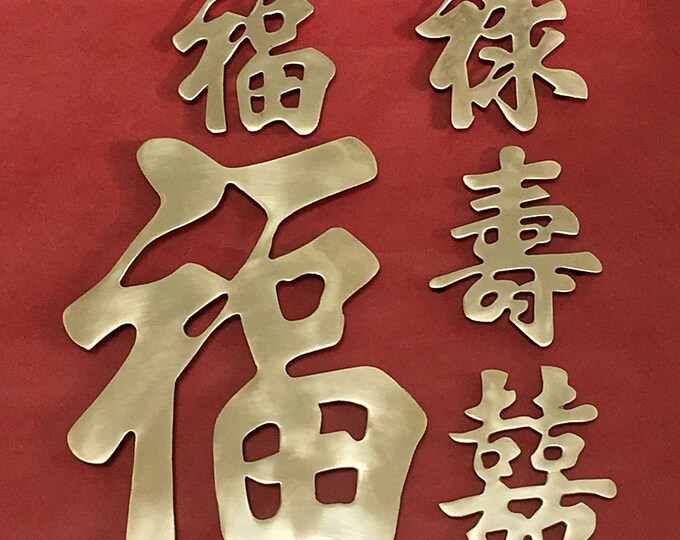 福 祿
福
壽
囍